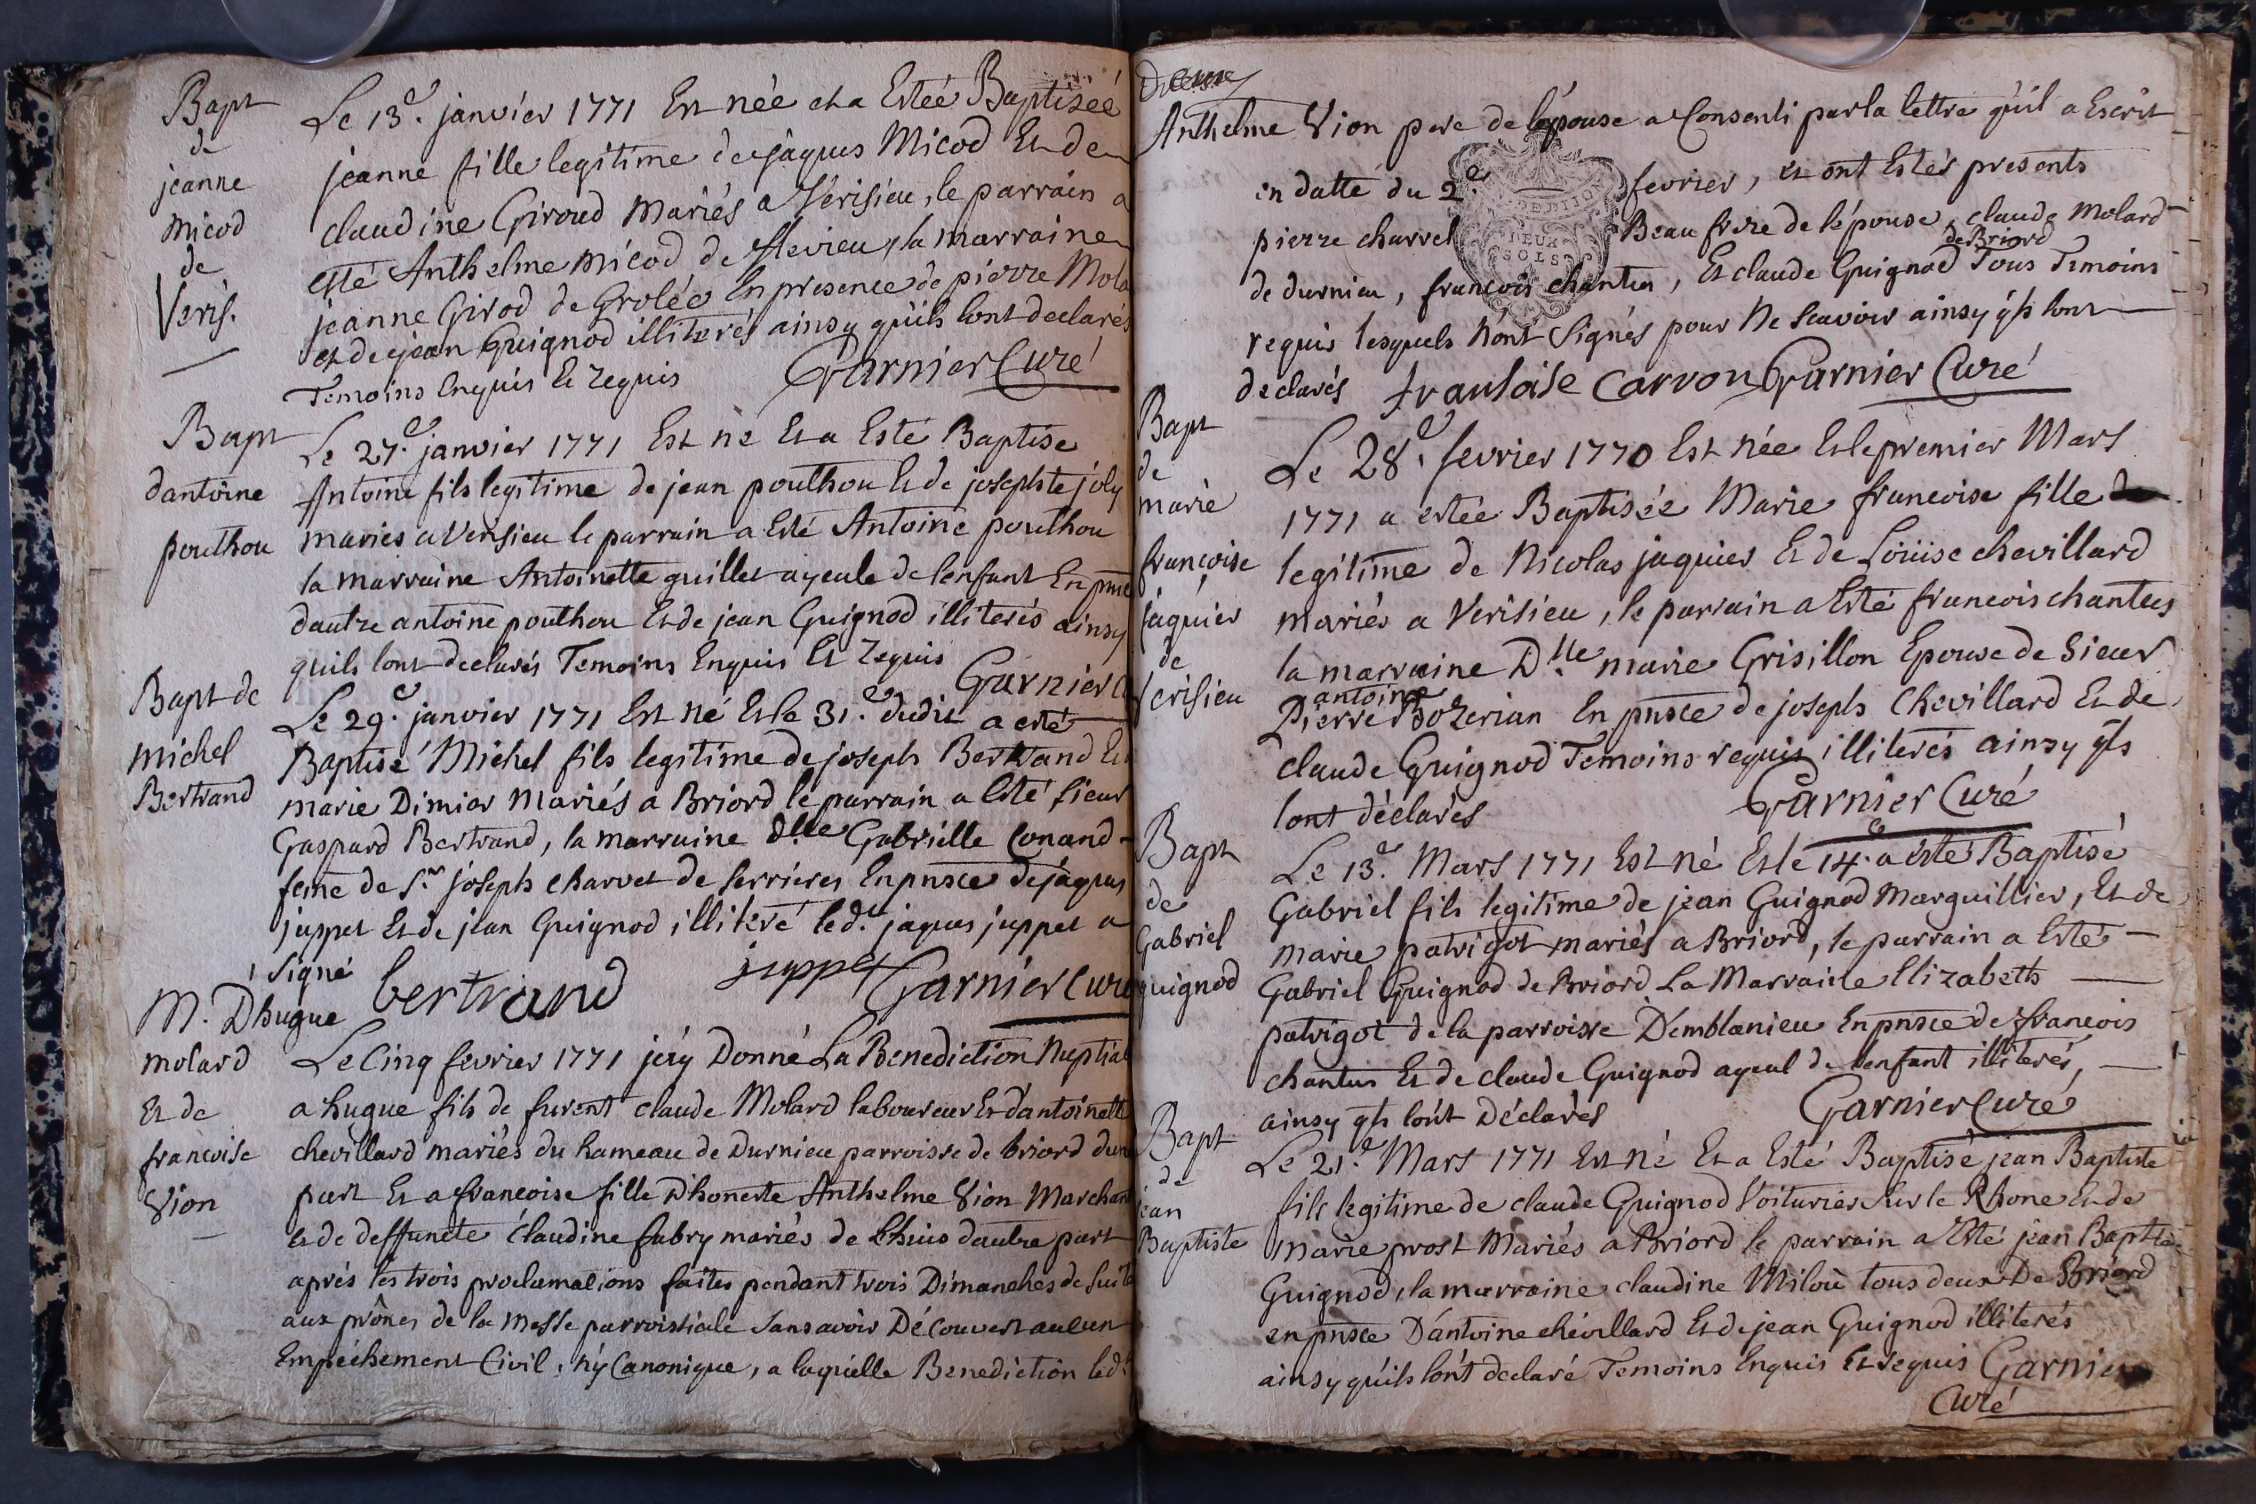 Bapt
de
jeanne
Micod
de
Veris.
Le 13.e janvier 1771 Est née et a Estée Baptiseé
jeanne fille legitime de jâques Micod Et de
claudine Giroud mariés a Vérisieu, le parrain a
esté Anthelme micod de flevieu, la marraine
jeanne Girod de Grolée En presence de pierre Mola
et de jean Guignod illiterés ainsy qu'ils lont declarés
Temoins Enquis Et requis Garnier Curé
Bapt
dantoine
pouthou
Le 27.e janvier 1771 Est né Et a Esté Baptise
Antoine fils legitime de jean pouthou Et de josephte joly
mariés a Verisieu le parrain a Esté Antoine pouthou
la marraine Antoinette guillet ayeule de lenfant En pnce
dautre antoine pouthou Et de jean Guignod illiterés ainsy
quils lont declarés Temoins Enquis Et requis Garnier
Bapt de
michel
Bertrand
Le 29.e janvier 1771 Est né Et le 31.e dudit a esté
Baptisé Michel fils legitime de joseph Bertrand Et
marie Dimier Mariés a Briord le parrain a Esté sieur
Gaspard Bertrand, la marraine dlle Gabrielle Conand
feme de Sr. joseph charvet de serrieres En pnsce de jâques
juppet Et de jean Guignod illiteré led.t jaques juppet a
signé bertrand juppet Garnier Curé
M. D'hugue
molard
Et de
francoise
Vion
Le Cinq fevrier 1771 j'ey Donné La Benediction Nuptial
a hugue fils de furent claude Molard laboureur Et d'antoinette
chevillard mariés du hameau de Durnieu parroisse de briord dune
part Et a francoise fille D'honeste Anthelme Vion Marchand
et de deffuncte Claudine fabry mariés de Lhuis dautre part
aprés les trois proclamations faites pendant trois Dimanches de suite
aux prônes de la Messe parroissiale sans avoir Découvert aucun
Empéchement Civil, n'y Canonique, a laquelle Benediction led.t
Anthelme Vion pere de lépouse a Consenti par la lettre qu'il a Escrit
en datte du 2.e fevrier, et ont Estés presents
pierre charvet Beau frere de lépouse, claude Molard
de Briord
de durnieu, francois chantes, Et claude Guignod Tous Temoins
DEUX
SOLS
requis lesquels n'ont signés pour Ne Scavoir ainsy qls lont
declarés fransoise Carron Garnier Curé
Bapt
de
marie
françoise
jaquier
de
Verisieu
Le 28.e fevrier 1770 Est née Et le premier Mars
1771 a estée Baptisée Marie francoise fille
legitime de Nicolas jaquier Et de Loüise chevillard
mariés a Verisieu, le parrain a Esté francois chantes
la marraine Dlle marie Grisillon Epouse de Sieur
antoine
Pierre Bozerian En pnsce de joseph Chevillard Et de
claude Guignod Temoins requis illiterés ainsy qls
lont déclarés Garnier Curé
Bapt
de
Gabriel
guignod
Le 13.e Mars 1771 Est né Et le 14.e a esté Baptisé
Gabriel fils legitime de jean Guignod Marguillier, Et de
marie patrigot mariés a Briord, le parrain a Estés
Gabriel Guignod de Briord La Marraine Elizabeth
patrigot de la parroisse D'emblanieu En pnsce de francois
chantes Et de claude Guignod ayeul de lenfant illiterés,
ainsy qls lon't Déclarés Garnier Curé
Bapt
de
jean
Baptiste
Le 21.e Mars 1771 Est né Et a Esté Baptisé jean Baptiste
fils legitime de claude Guignod Voiturier sur le Rhone Et de
marie prost Mariés a Briord le parrain a Esté jean Baptte
Guignod, la marraine claudine Miloü tous deux De Briord
en pnsce D'antoine chévillard Et de jean Guignod illiterés
ainsy qu'ils lon't declaré Temoins Enquis Et requis Garnier
Curé